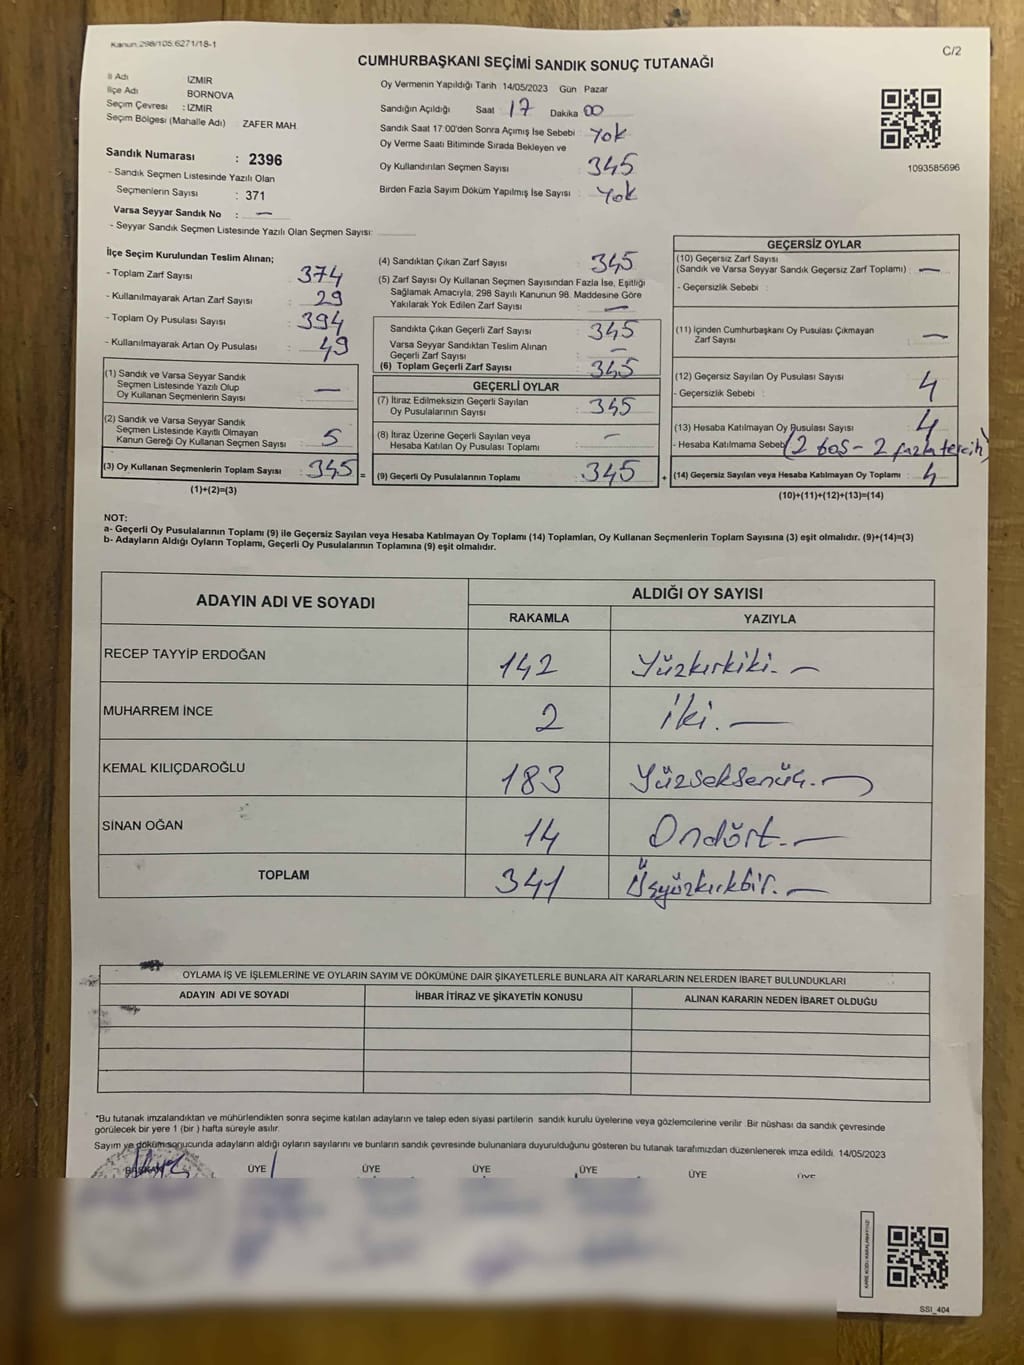 Kanun.298/105.6271/18-1
C/2
CUMHURBAŞKANI SEÇİMİ SANDIK SONUÇ TUTANAĞI
İl Adı İZMİR
İlçe Adı BORNOVA
Seçim Çevresi : İZMİR
Seçim Bölgesi (Mahalle Adı) ZAFER MAH.
Sandık Numarası : 2396
- Sandık Seçmen Listesinde Yazılı Olan
Seçmenlerin Sayısı : 371
Varsa Seyyar Sandık No : —
- Seyyar Sandık Seçmen Listesinde Yazılı Olan Seçmen Sayısı:
Oy Vermenin Yapıldığı Tarih 14/05/2023 Gün Pazar
Sandığın Açıldığı Saat 17 Dakika 00
Sandık Saat 17:00'den Sonra Açılmış İse Sebebi Yok
Oy Verme Saati Bitiminde Sırada Bekleyen ve
Oy Kullandırılan Seçmen Sayısı 345
Birden Fazla Sayım Döküm Yapılmış İse Sayısı Yok
1093585696
İlçe Seçim Kurulundan Teslim Alınan;
- Toplam Zarf Sayısı : 374
- Kullanılmayarak Artan Zarf Sayısı : 29
- Toplam Oy Pusulası Sayısı : 394
- Kullanılmayarak Artan Oy Pusulası : 49
(1) Sandık ve Varsa Seyyar Sandık
Seçmen Listesinde Yazılı Olup
Oy Kullanan Seçmenlerin Sayısı : —
(2) Sandık ve Varsa Seyyar Sandık
Seçmen Listesinde Kayıtlı Olmayan
Kanun Gereği Oy Kullanan Seçmen Sayısı : 5
(3) Oy Kullanan Seçmenlerin Toplam Sayısı : 345 =
(1)+(2)=(3)
(4) Sandıktan Çıkan Zarf Sayısı : 345
(5) Zarf Sayısı Oy Kullanan Seçmen Sayısından Fazla İse, Eşitliği
Sağlamak Amacıyla; 298 Sayılı Kanunun 98. Maddesine Göre
Yakılarak Yok Edilen Zarf Sayısı : —
Sandıkta Çıkan Geçerli Zarf Sayısı : 345
Varsa Seyyar Sandıktan Teslim Alınan
Geçerli Zarf Sayısı : —
(6) Toplam Geçerli Zarf Sayısı : 345
GEÇERLİ OYLAR
(7) İtiraz Edilmeksizin Geçerli Sayılan
Oy Pusulalarının Sayısı : 345
(8) İtiraz Üzerine Geçerli Sayılan veya
Hesaba Katılan Oy Pusulası Toplamı : —
(9) Geçerli Oy Pusulalarının Toplamı : 345 +
GEÇERSİZ OYLAR
(10) Geçersiz Zarf Sayısı
(Sandık ve Varsa Seyyar Sandık Geçersiz Zarf Toplamı) : —
- Geçersizlik Sebebi :
(11) İçinden Cumhurbaşkanı Oy Pusulası Çıkmayan
Zarf Sayısı : —
(12) Geçersiz Sayılan Oy Pusulası Sayısı : 4
- Geçersizlik Sebebi :
(13) Hesaba Katılmayan Oy Pusulası Sayısı : 4
- Hesaba Katılmama Sebebi (2 boş - 2 fazla tercih)
(14) Geçersiz Sayılan veya Hesaba Katılmayan Oy Toplamı : 4
(10)+(11)+(12)+(13)=(14)
NOT:
a- Geçerli Oy Pusulalarının Toplamı (9) ile Geçersiz Sayılan veya Hesaba Katılmayan Oy Toplamı (14) Toplamları, Oy Kullanan Seçmenlerin Toplam Sayısına (3) eşit olmalıdır. (9)+(14)=(3)
b- Adayların Aldığı Oyların Toplamı, Geçerli Oy Pusulalarının Toplamına (9) eşit olmalıdır.
ADAYIN ADI VE SOYADI ALDIĞI OY SAYISI
RAKAMLA YAZIYLA
RECEP TAYYİP ERDOĞAN 142 Yüzkırkiki. —
MUHARREM İNCE 2 iki. —
KEMAL KILIÇDAROĞLU 183 Yüzseksenüç. —
SİNAN OĞAN 14 Ondört. —
TOPLAM 341 Üçyüzkırkbir. —
OYLAMA İŞ VE İŞLEMLERİNE VE OYLARIN SAYIM VE DÖKÜMÜNE DAİR ŞİKAYETLERLE BUNLARA AİT KARARLARIN NELERDEN İBARET BULUNDUKLARI
ADAYIN ADI VE SOYADI İHBAR İTİRAZ VE ŞİKAYETİN KONUSU ALINAN KARARIN NEDEN İBARET OLDUĞU
*Bu tutanak imzalandıktan ve mühürlendikten sonra seçime katılan adayların ve talep eden siyasi partilerin sandık kurulu üyelerine veya gözlemcilerine verilir. Bir nüshası da sandık çevresinde
görülecek bir yere 1 (bir ) hafta süreyle asılır.
Sayım ve döküm sonucunda adayların aldığı oyların sayılarını ve bunların sandık çevresinde bulunanlara duyurulduğunu gösteren bu tutanak tarafımızdan düzenlenerek imza edildi. 14/05/2023
BAŞKAN ÜYE ÜYE ÜYE ÜYE ÜYE ÜYE
SSI_404